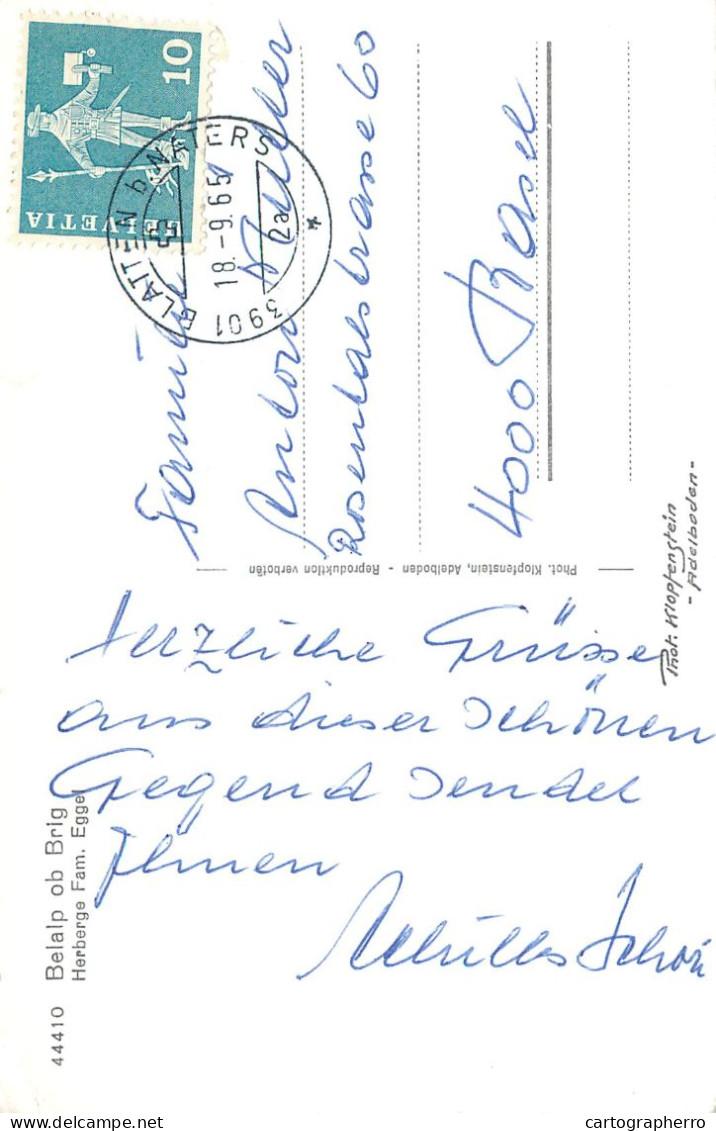 HELVETIA
10
3901 BLATTEN b. NATERS
18.-9.65
2a
Familie
Anton Müller
Rosentalstrasse 60
4000 Basel
Phot. Klopfenstein, Adelboden - Reproduktion verboten
Phot. Klopfenstein
- Adelboden -
Herzliche Grüsse
aus dieser schönen
Gegend sendet
Ihnen
Achilles Schön
44410 Belalp ob Brig
Herberge Fam. Eggel
www.delcampe.net
cartographerro